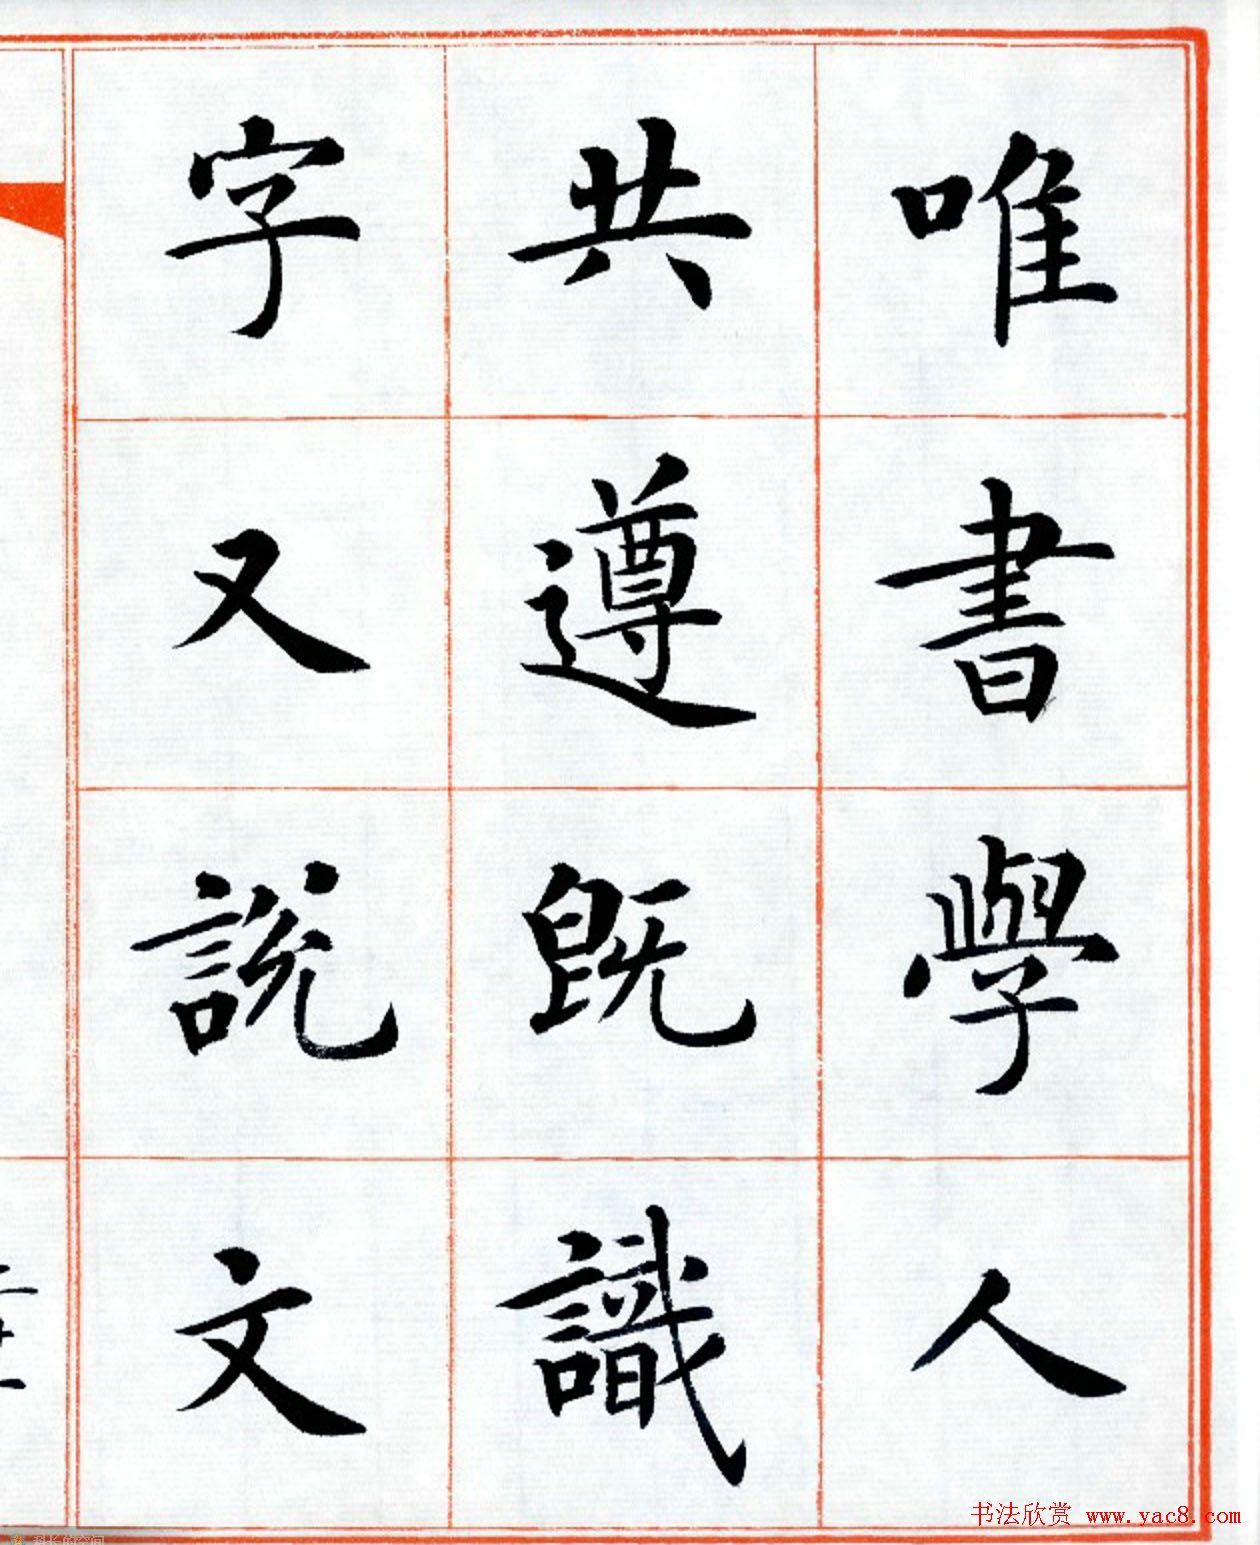 唯書學人
共遵既識
字又説文
书法欣赏 www.yac8.com